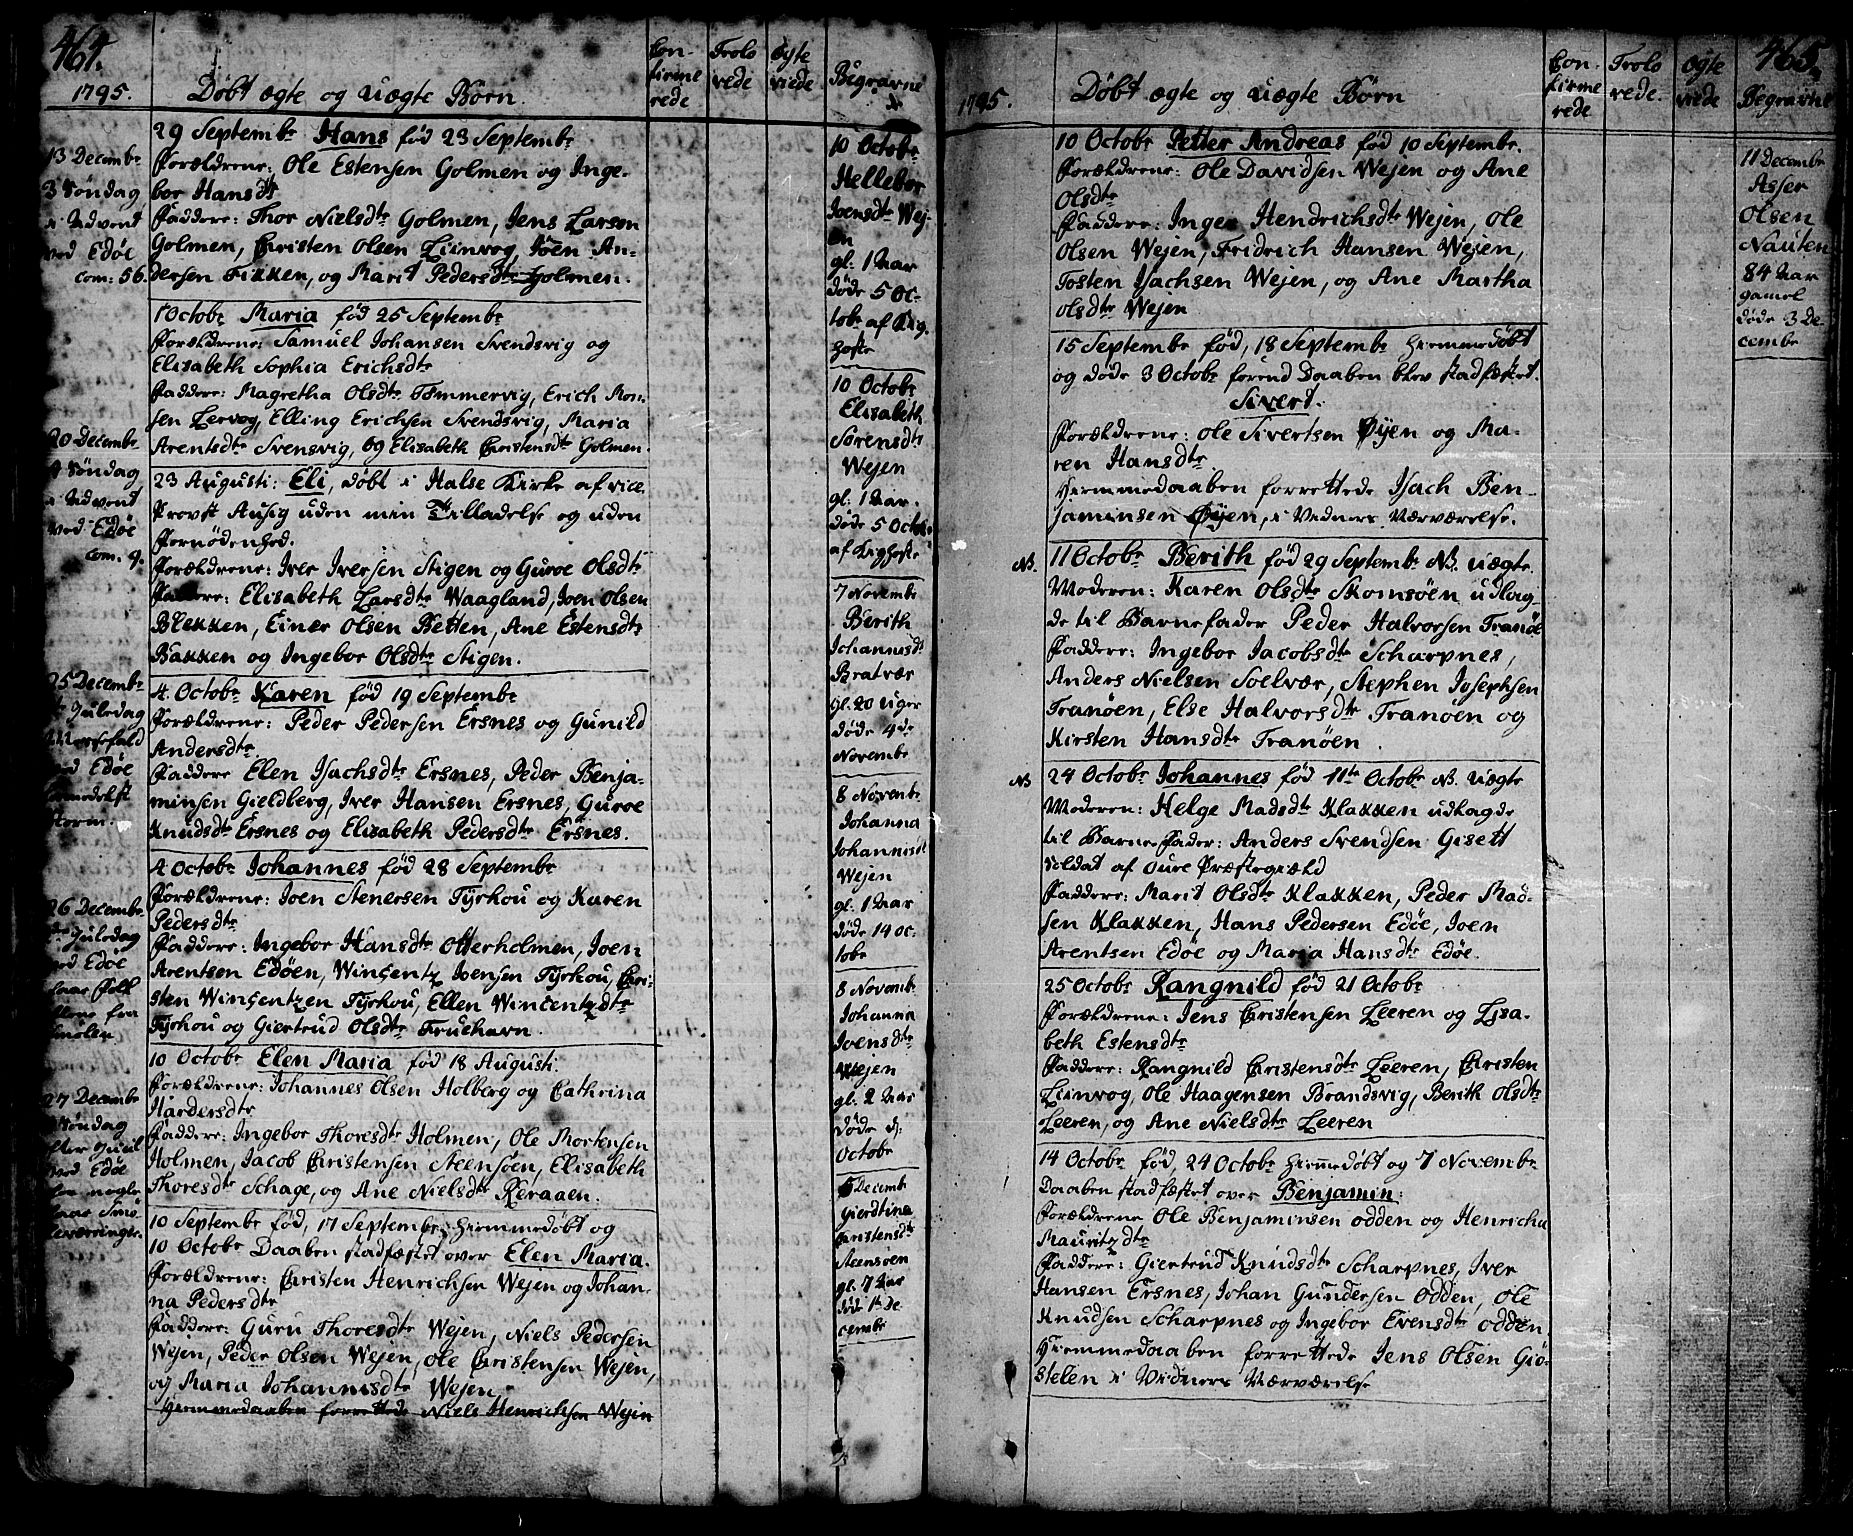 464.
1795.
Døbt ægte og uægte Børn.
Con-
firme
rede
Trolo
vede
Ægte
viede
Begravne
13 Decembr
3 Søndag
i Advent
ved Edöe
com: 56.
20 Decembr
4 Søndag
i Advent
ved Edöe
com. 9.
25 Decembr
Juledag
ved Edöe
formedelst
storm.
26 Decembr
Juledag
ved Edöe
Smölen
27 Decembr
Søndag
efter Juul
ved Edöe
29 Septembr Hans fød 23 Septembr
Forældrene: Ole Estensen Golmen og Inge-
bor Hansdtr
Faddere: Thor Nielsdtr Golmen, Jens Larsen
Golmen, Christen Olsen Liinvog, Joen An-
dersen Fikken, og Marit Pedersdtr Golmen.
1 Octobr Maria fød 25 Septembr
Forældrene: Samuel Johansen Svendsvig og
Elisabeth Sophia Erichsdtr
Faddere: Magretha Olsdtr Tømmervig, Erich Mon-
sen Lervog, Elling Erichsen Svendsvig, Maria
Arentsdtr Svensvig, og Elisabeth Christensdtr Golmen.
23 Augusti: Eli, døbt i Halse Kirke af vice
Provst Ausig uden min Tilladelse og uden
Fornødenhed.
Forældrene: Iver Iversen Stigen og Guroe Olsdtr
Faddere: Elisabeth Larsdtr Waagland, Joen Olsen
Blekken, Einer Olsen Betten, Ane Estensdtr
Bakken og Ingebor Olsdtr Stigen.
4. Octobr Karen fød 19 Septembr
Forældrene: Peder Pedersen Ersnes og Gunild
Andersdtr
Faddere Elen Isachsdtr Ersnes, Peder Benja-
minsen Gieldberg, Iver Hansen Ersnes, Guroe
Knudsdtr Ersnes og Elisabeth Pedersdtr Ersnes.
4 Octobr Johannes fød 28 Septembr
Forældrene: Joen Stenersen Tyrhou og Karen
Pedersdtr
Faddere: Ingebor Hansdtr Otterholmen, Joen
Arentsen Edöen, Winsentz Joensen Tyrhou, Chri-
sten Winsentzen Tyrhou, Ellen Wincentzdtr
Tyrhou og Giertrud Olsdtr Fruehavn.
10 Octobr Elen Maria fød 18 Augusti:
Forældrene: Johannes Olsen Holberg og Cathrina
Hardersdtr
Faddere: Ingebor Thoresdtr Holmen, Ole Mortensen
Holmen, Jacob Christensen Steensöen, Elisabeth
Thoresdtr Schage, og Ane Nielsdtr Reraaen.
10 Septembr fød, 17 Septembr: Hiemmedøbt og
10 Octobr Daaben stadfæstet over Elen Maria.
Forældrene: Christen Henrichsen Wejen og Johan-
na Pedersdtr
Faddere: Guru Thoresdtr Wejen, Niels Pedersen
Wejen, Peder Olsen Wejen, Ole Christensen Wejen,
og Maria Johannesdtr Wejen
Hiemmedaaben forrettede Niels Henrichsen Wejen
10 Octobr
Hellebor
Joensdtr Wej
en
gl: 1 Aar
døde 5 Oc-
tobr af Kig-
hoste
10 Octobr
Elisabeth
Sörensdtr
Wejen
gl: 1 Aar.
døde 5 Octobr
af Kighoste
7 Novembr
Berith
Johannesdtr
Bratvær
gl. 20 Uger
døde 4de
Novembr
8 Novembr
Johanna
Johannisdtr
Wejen
gl: 1 Aar
døde 14 oc-
tobr
8 Novembr
Johanna
Joensdtr
Wejen
gl. 2 Aar
døde d:
Octobr
Decembr
Gierdtina
Christensdtr
Steensöen
gl. 7 Aar
død 1te De
cembr
465.
1795.
Døbt ægte og uægte Børn
Con-
firme
rede
Trolo
vede.
Ægte
viede
Begravne
10 Octobr Petter Andreas fød 10 Septembr.
Forældrene: Ole Davidsen Wejen og Ane
Olsdtr
Faddere: Inger Hendrichsdtr Wejen, Ole
Olsen Wejen, Fridrich Hansen Wejen,
Tosten Isachsen Wejen, og Ane Martha
Olsdtr Wejen
15 Septembr fød, 18 Septembr Hiemmedøbt
og døde 3 Octobr forend Daaben blev stadfæstet.
Sivert.
Forældrene: Ole Sivertsen Øyen og Ma-
ren Hansdtr
Hiemmedaaben forrettede Isach Ben-
jaminsen Øyen, i Vidners Nærværelse.
NB. 11 Octobr Berith fød 29 Septembr NB. Uægte.
Moderen: Karen Olsdtr Skomsöen udlag-
de til Barnefader Peder Halvorsen Tranöe
Faddere: Ingebor Jacobsdtr Scharpnes,
Anders Nielsen Soelvær, Stephen Josephsen
Tranöen, Else Halvorsdtr Tranöen og
Kirsten Hansdtr Tranöen.
NB 24 Octobr Johannes fød 11te Octobr NB. Uægte
Moderen: Helge Madsdtr Klakken udlagde
til Barne Fader: Anders Svendsen Gisett
Soldat af Oure Præstegield
Faddere: Marit Olsdtr Klakken, Peder Mad-
sen Klakken, Hans Pedersen Edöe, Joen
Arentsen Edöe og Maria Hansdtr Edöe.
25 Octobr Rangnild fød 21 Octobr
Forældrene: Jens Christensen Leeren og Lisa-
beth Estensdtr
Faddere: Rangnild Christensdtr Leeren, Christen
Liinvog, Ole Haagensen Brandsvig, Berith Olsdtr
Leeren, og Ane Nielsdtr Leeren
14 Octobr fød, 24 Octobr Hiemmedøbt og 7 Novembr
Daaben stadfæstet over Benjamin:
Forældrene Ole Benjaminsen Odden og Henricha
Mauritzdtr
Faddere: Giertrud Knudsdtr Scharpnes, Iver
Hansen Ersnes, Johan Gundersen Odden, Ole
Knudsen Scharpnes og Ingebor Evensdtr Odden
Hiemmedaaben forrettede Jens Olsen Giö-
stelen i Vidners Nærværelse
11 Decembr
Asser
Olsen
Nauten
84 Aar
gamel
døde 3 De-
cembr